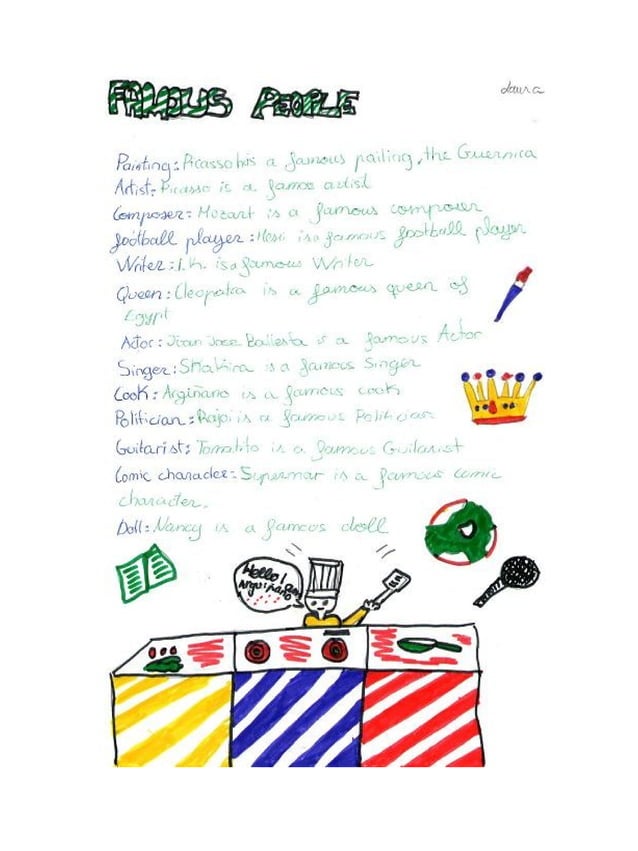 FAMOUS PEOPLE
Laura
Painting: Picasso has a famous pailing, the Guernica
Artist: Picasso is a famoo artist
Composer: Mozart is a famous composer
football player: Messi is a famous football player
Writer: J.K. is a famous Writer
Queen: Cleopatra is a famous queen of
Egypt
Actor: Juan Jose Ballesta is a famous Actor
Singer: Shakira is a famous Singer
Cook: Argiñano is a famous cook
Politician: Rajoi is a famous Politician
Guitarist: Tomatito is a famous Guitarist
Comic character: Superman is a famous comic
character.
Doll: Nancy is a famous doll
Hello I am
Arguiñano